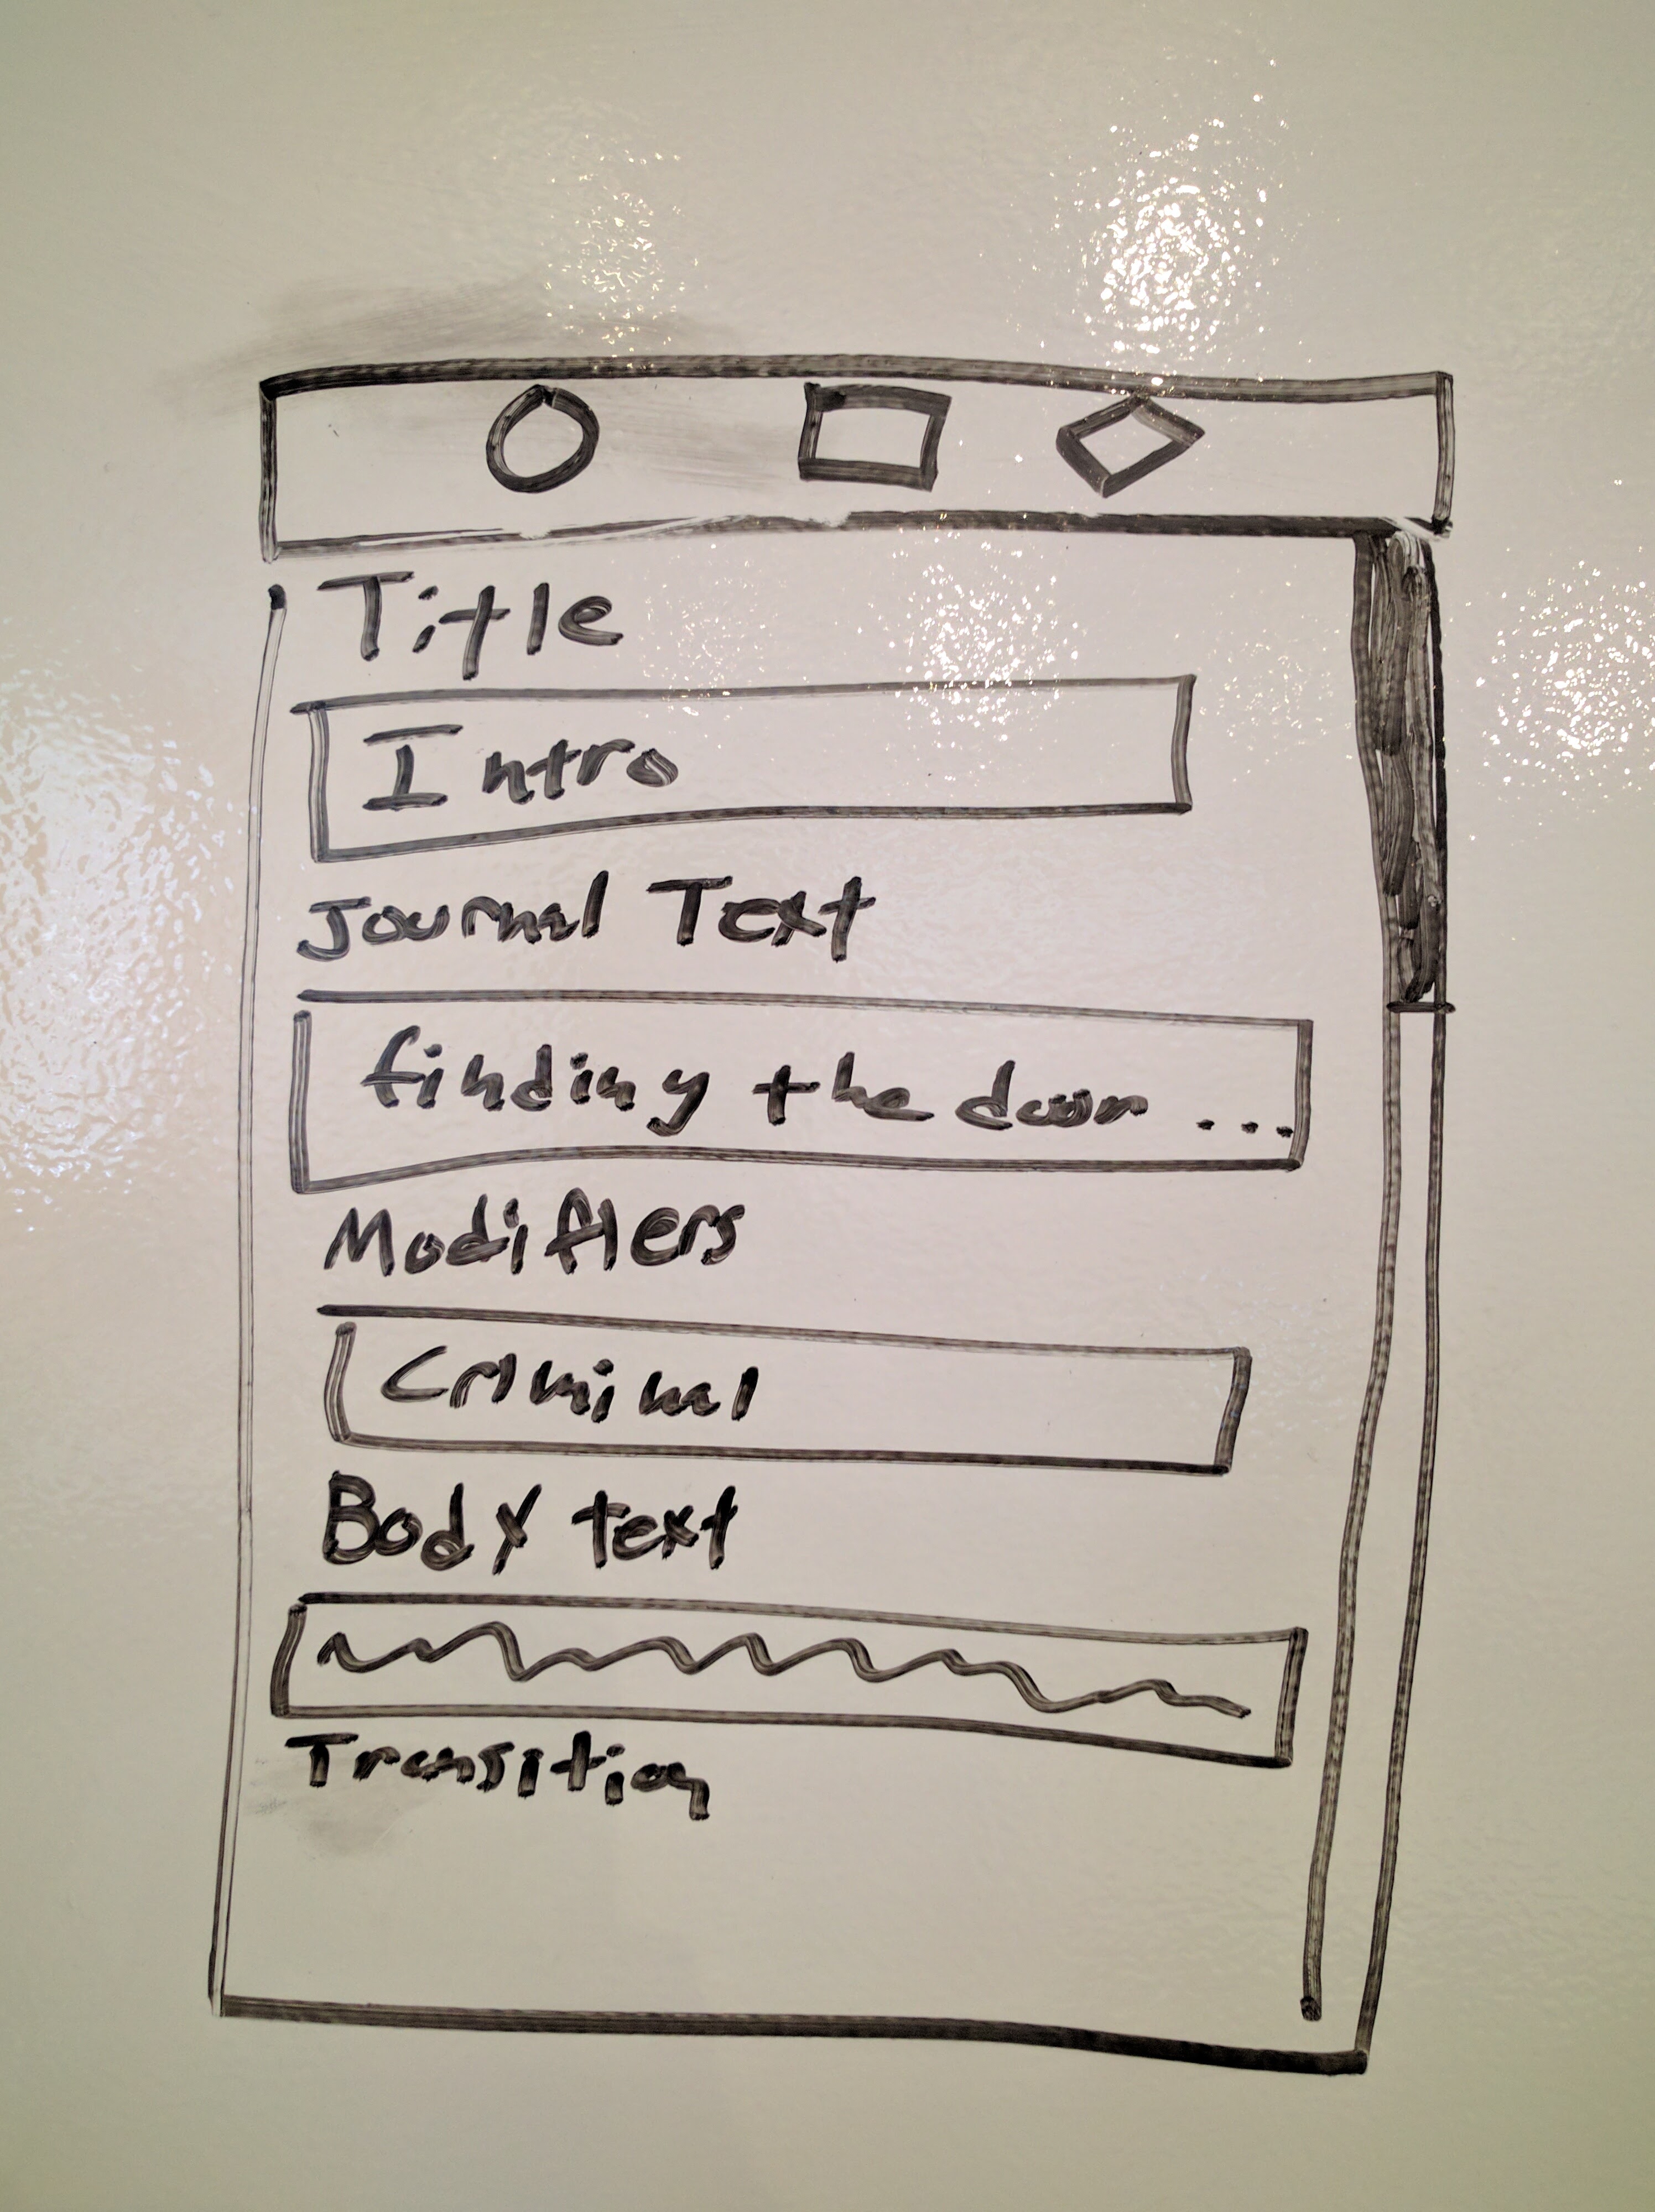 Title
Intro
Journal Text
finding the door ...
Modifiers
Criminal
Body text
Transition